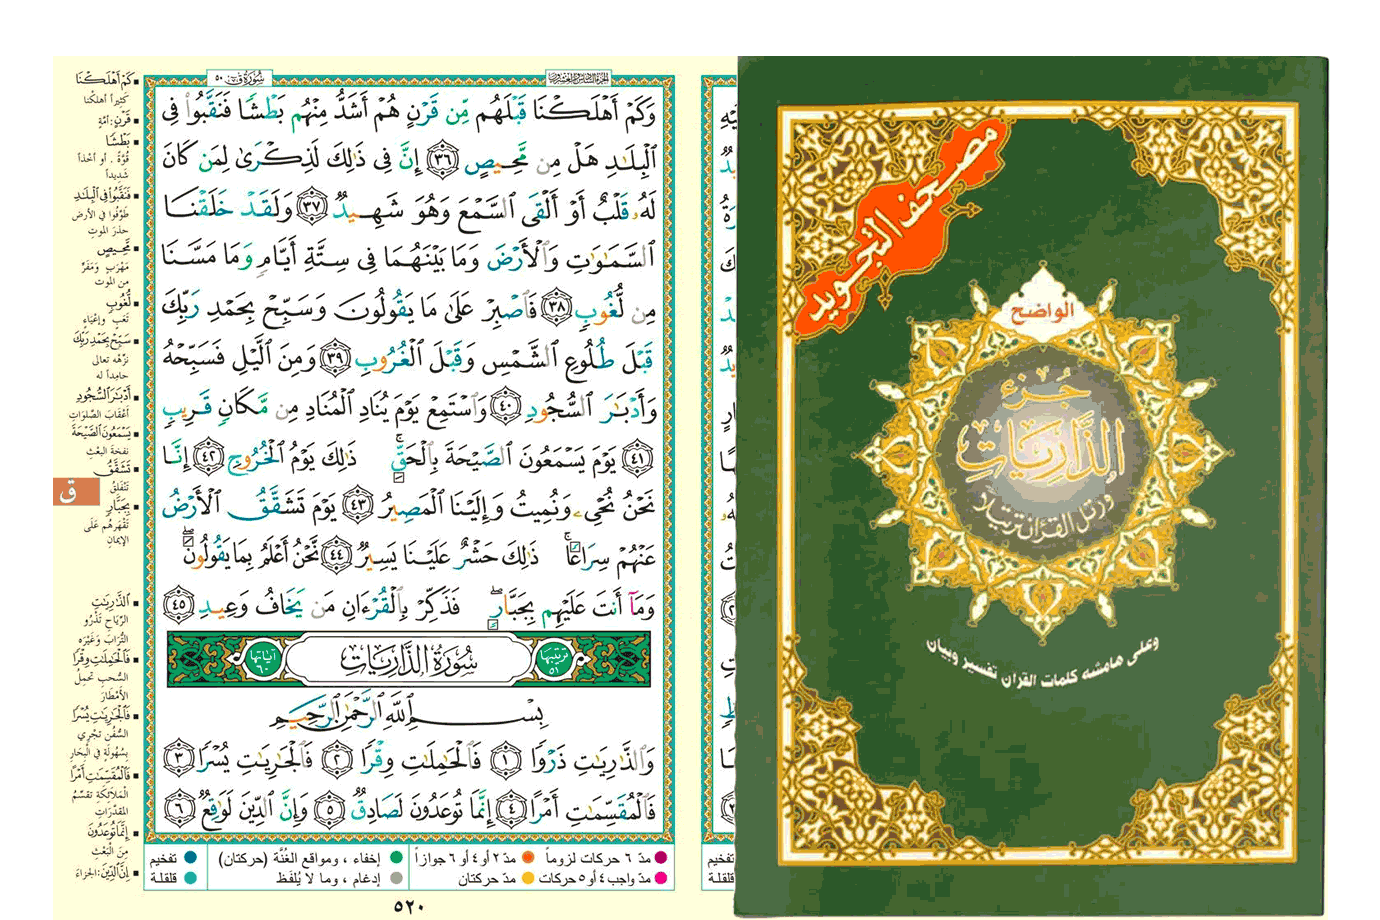 سُورَةُ قٓ ٥٠
الجزء السادس والعشرون
وَكَمْ أَهْلَكْنَا قَبْلَهُم مِّن قَرْنٍ هُمْ أَشَدُّ مِنْهُم بَطْشًا فَنَقَّبُوا۟ فِى
ٱلْبِلَـٰدِ هَلْ مِن مَّحِيصٍ ٣٦ إِنَّ فِى ذَٰلِكَ لَذِكْرَىٰ لِمَن كَانَ
لَهُۥ قَلْبٌ أَوْ أَلْقَى ٱلسَّمْعَ وَهُوَ شَهِيدٌ ٣٧ وَلَقَدْ خَلَقْنَا
ٱلسَّمَـٰوَٰتِ وَٱلْأَرْضَ وَمَا بَيْنَهُمَا فِى سِتَّةِ أَيَّامٍ وَمَا مَسَّنَا
مِن لُّغُوبٍ ٣٨ فَٱصْبِرْ عَلَىٰ مَا يَقُولُونَ وَسَبِّحْ بِحَمْدِ رَبِّكَ
قَبْلَ طُلُوعِ ٱلشَّمْسِ وَقَبْلَ ٱلْغُرُوبِ ٣٩ وَمِنَ ٱلَّيْلِ فَسَبِّحْهُ
وَأَدْبَـٰرَ ٱلسُّجُودِ ٤٠ وَٱسْتَمِعْ يَوْمَ يُنَادِ ٱلْمُنَادِ مِن مَّكَانٍ قَرِيبٍ
٤١ يَوْمَ يَسْمَعُونَ ٱلصَّيْحَةَ بِٱلْحَقِّ ۚ ذَٰلِكَ يَوْمُ ٱلْخُرُوجِ ٤٢ إِنَّا
نَحْنُ نُحْىِۦ وَنُمِيتُ وَإِلَيْنَا ٱلْمَصِيرُ ٤٣ يَوْمَ تَشَقَّقُ ٱلْأَرْضُ
عَنْهُمْ سِرَاعًا ۚ ذَٰلِكَ حَشْرٌ عَلَيْنَا يَسِيرٌ ٤٤ نَّحْنُ أَعْلَمُ بِمَا يَقُولُونَ ۖ
وَمَآ أَنتَ عَلَيْهِم بِجَبَّارٍ ۖ فَذَكِّرْ بِٱلْقُرْءَانِ مَن يَخَافُ وَعِيدِ ٤٥
ترتيبها ٥١ سُورَةُ الذَّارِيَاتِ آياتها ٦٠
بِسْمِ ٱللَّهِ ٱلرَّحْمَـٰنِ ٱلرَّحِيمِ
وَٱلذَّٰرِيَـٰتِ ذَرْوًا ١ فَٱلْحَـٰمِلَـٰتِ وِقْرًا ٢ فَٱلْجَـٰرِيَـٰتِ يُسْرًا ٣
فَٱلْمُقَسِّمَـٰتِ أَمْرًا ٤ إِنَّمَا تُوعَدُونَ لَصَادِقٌ ٥ وَإِنَّ ٱلدِّينَ لَوَٰقِعٌ ٦
كَمْ أَهْلَكْنَا
كثيراً أهلكنا
قَرْنٍ: أمّةٍ
بَطْشًا
قُوَّةً، أو أخْذاً
شديداً
فَنَقَّبُوا فِي الْبِلَادِ
طَوَّفُوا في الأرض
حذرَ الموتِ
مَحِيصٍ
مَهْرَبٍ وَمَفَرٍّ
من الموت
لُغُوبٍ
تَعَبٍ وإعْيَاءٍ
سَبِّحْ بِحَمْدِ رَبِّكَ
نزِّهْه تعالى
حامِداً له
أَدْبَارَ السُّجُودِ
أعْقَابَ الصَّلَوَاتِ
يَسْمَعُونَ الصَّيْحَةَ
نفخة البَعْثِ
تَشَقَّقُ
تَنْفَلِقُ
بِجَبَّارٍ
تَقْهَرُهُم عَلَى
الإيمانِ
ق
الذَّارِيَاتِ
الرِّيَاحِ تَذْرُو
التُّرَابَ وَغَيْرَه
فَالْحَامِلَاتِ وِقْرًا
السُّحبِ تحمِلُ
الأَمْطَارَ
فَالْجَارِيَاتِ يُسْرًا
السُّفُنِ تجْرِي
بِسُهُولَةٍ في البِحَارِ
فَالْمُقَسِّمَاتِ أَمْرًا
المَلَائِكَةِ تقَسِّمُ
المقدَّرَاتِ
إِنَّمَا تُوعَدُونَ
مِنَ الْبَعْثِ
إِنَّ الدِّينَ: الجزاءَ
مدّ ٦ حركات لزوماً مدّ ٢ أو ٤ أو ٦ جوازاً إخفاء ، ومواقع الغُنَّة (حركتان) تفخيم
مدّ واجب ٤ أو ٥ حركات مدّ حركتان إدغام ، وما لا يُلفَظ قلقلة
٥٢٠
تفخيم
قلقلة
مصحف التجويد
الواضح
جُزءُ
الذَّارِيَاتِ
ورتل القرآن ترتيلا
وعلى هامشه كلمات القرآن تفسير وبيان